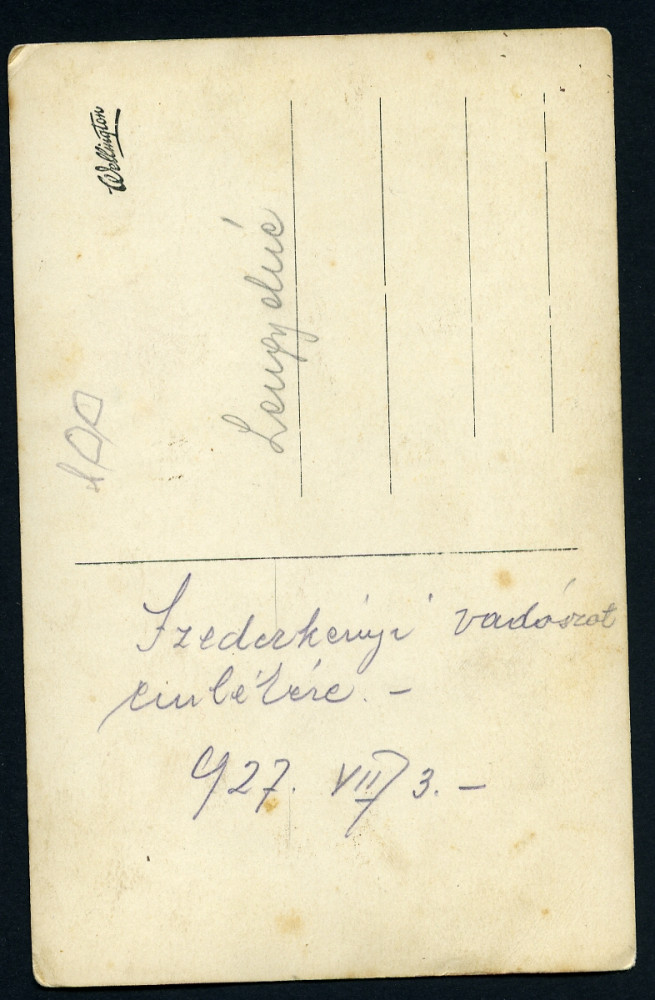 Wellington
Lengyelné
Szederkényi vadászat
emlékére. –
927. VII/3. –